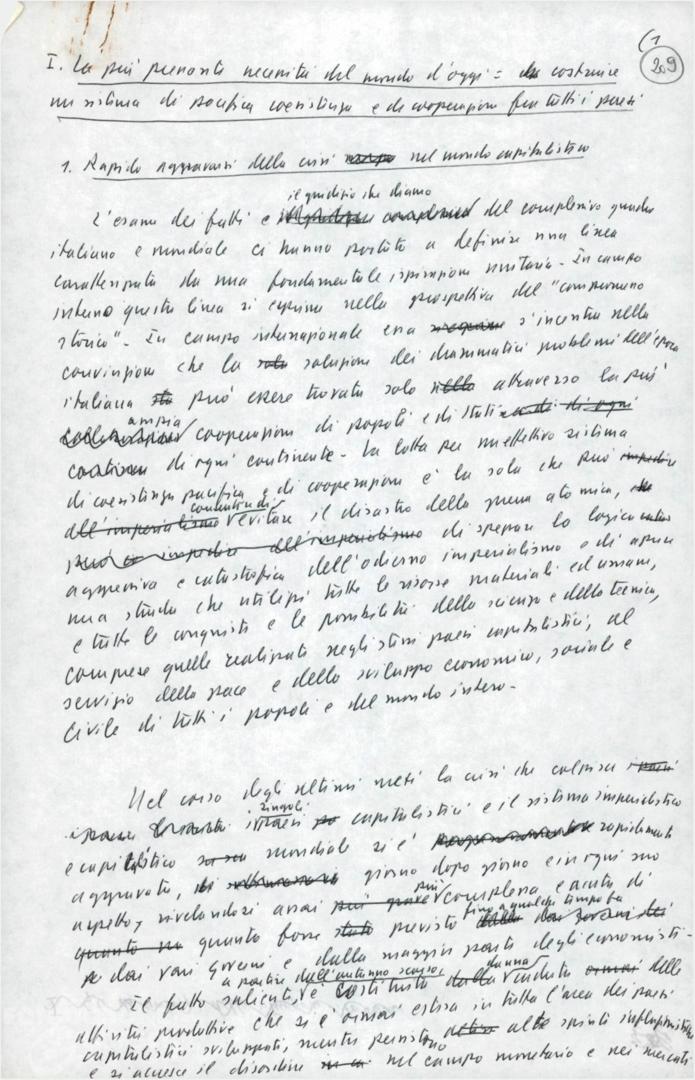 (1
209
I. La più pressante necessità del mondo d'oggi = costruire
un sistema di pacifica coesistenza e di cooperazione fra tutti i paesi
1. Rapido aggravarsi della crisi nel mondo capitalistico
il giudizio che diamo
L'esame dei fatti e del complessivo quadro
italiano e mondiale ci hanno portato a definire una linea
caratterizzata da una fondamentale ispirazione unitaria - In campo
interno questa linea si esprime nella prospettiva del "compromesso
storico" - In campo internazionale essa s'incentra nella
convinzione che la soluzione dei drammatici problemi dell'epoca
italiana può essere trovata solo attraverso la più
ampia
cooperazione di popoli e di stati
di ogni continente - La lotta per un effettivo sistema
di coesistenza pacifica e di cooperazione è la sola che può
all'imperialismo evitare il disastro della guerra atomica,
può impedire all'imperialismo di spezzare la logica
aggressiva e catastrofica dell'odierno imperialismo e di aprire
una strada che utilizzi tutte le risorse materiali ed umane,
e tutte le conquiste e le possibilità della scienza e della tecnica,
comprese quelle realizzate negli stessi paesi capitalistici, al
servizio della pace e dello sviluppo economico, sociale e
civile di tutti i popoli e del mondo intero -
Nel corso degli ultimi mesi la crisi che colpisce i paesi
singoli
paesi capitalistici e il sistema imperialistico
e capitalistico mondiale si è rapidamente
aggravata, giorno dopo giorno e in ogni suo
più
aspetto, rivelandosi assai più grave complessa e acuta di
fino a qualche tempo fa
quanto quanto forse stato previsto
dai vari governi e dalla maggior parte degli economisti -
a partire dall'autunno scorso, danna
Il fatto saliente è costituito dalla caduta delle
attività produttive che si è ormai estesa in tutta l'area dei paesi
capitalistici sviluppati, mentre persistono alte spinte inflazionistiche
e si accresce il disordine nel campo monetario e nei mercati